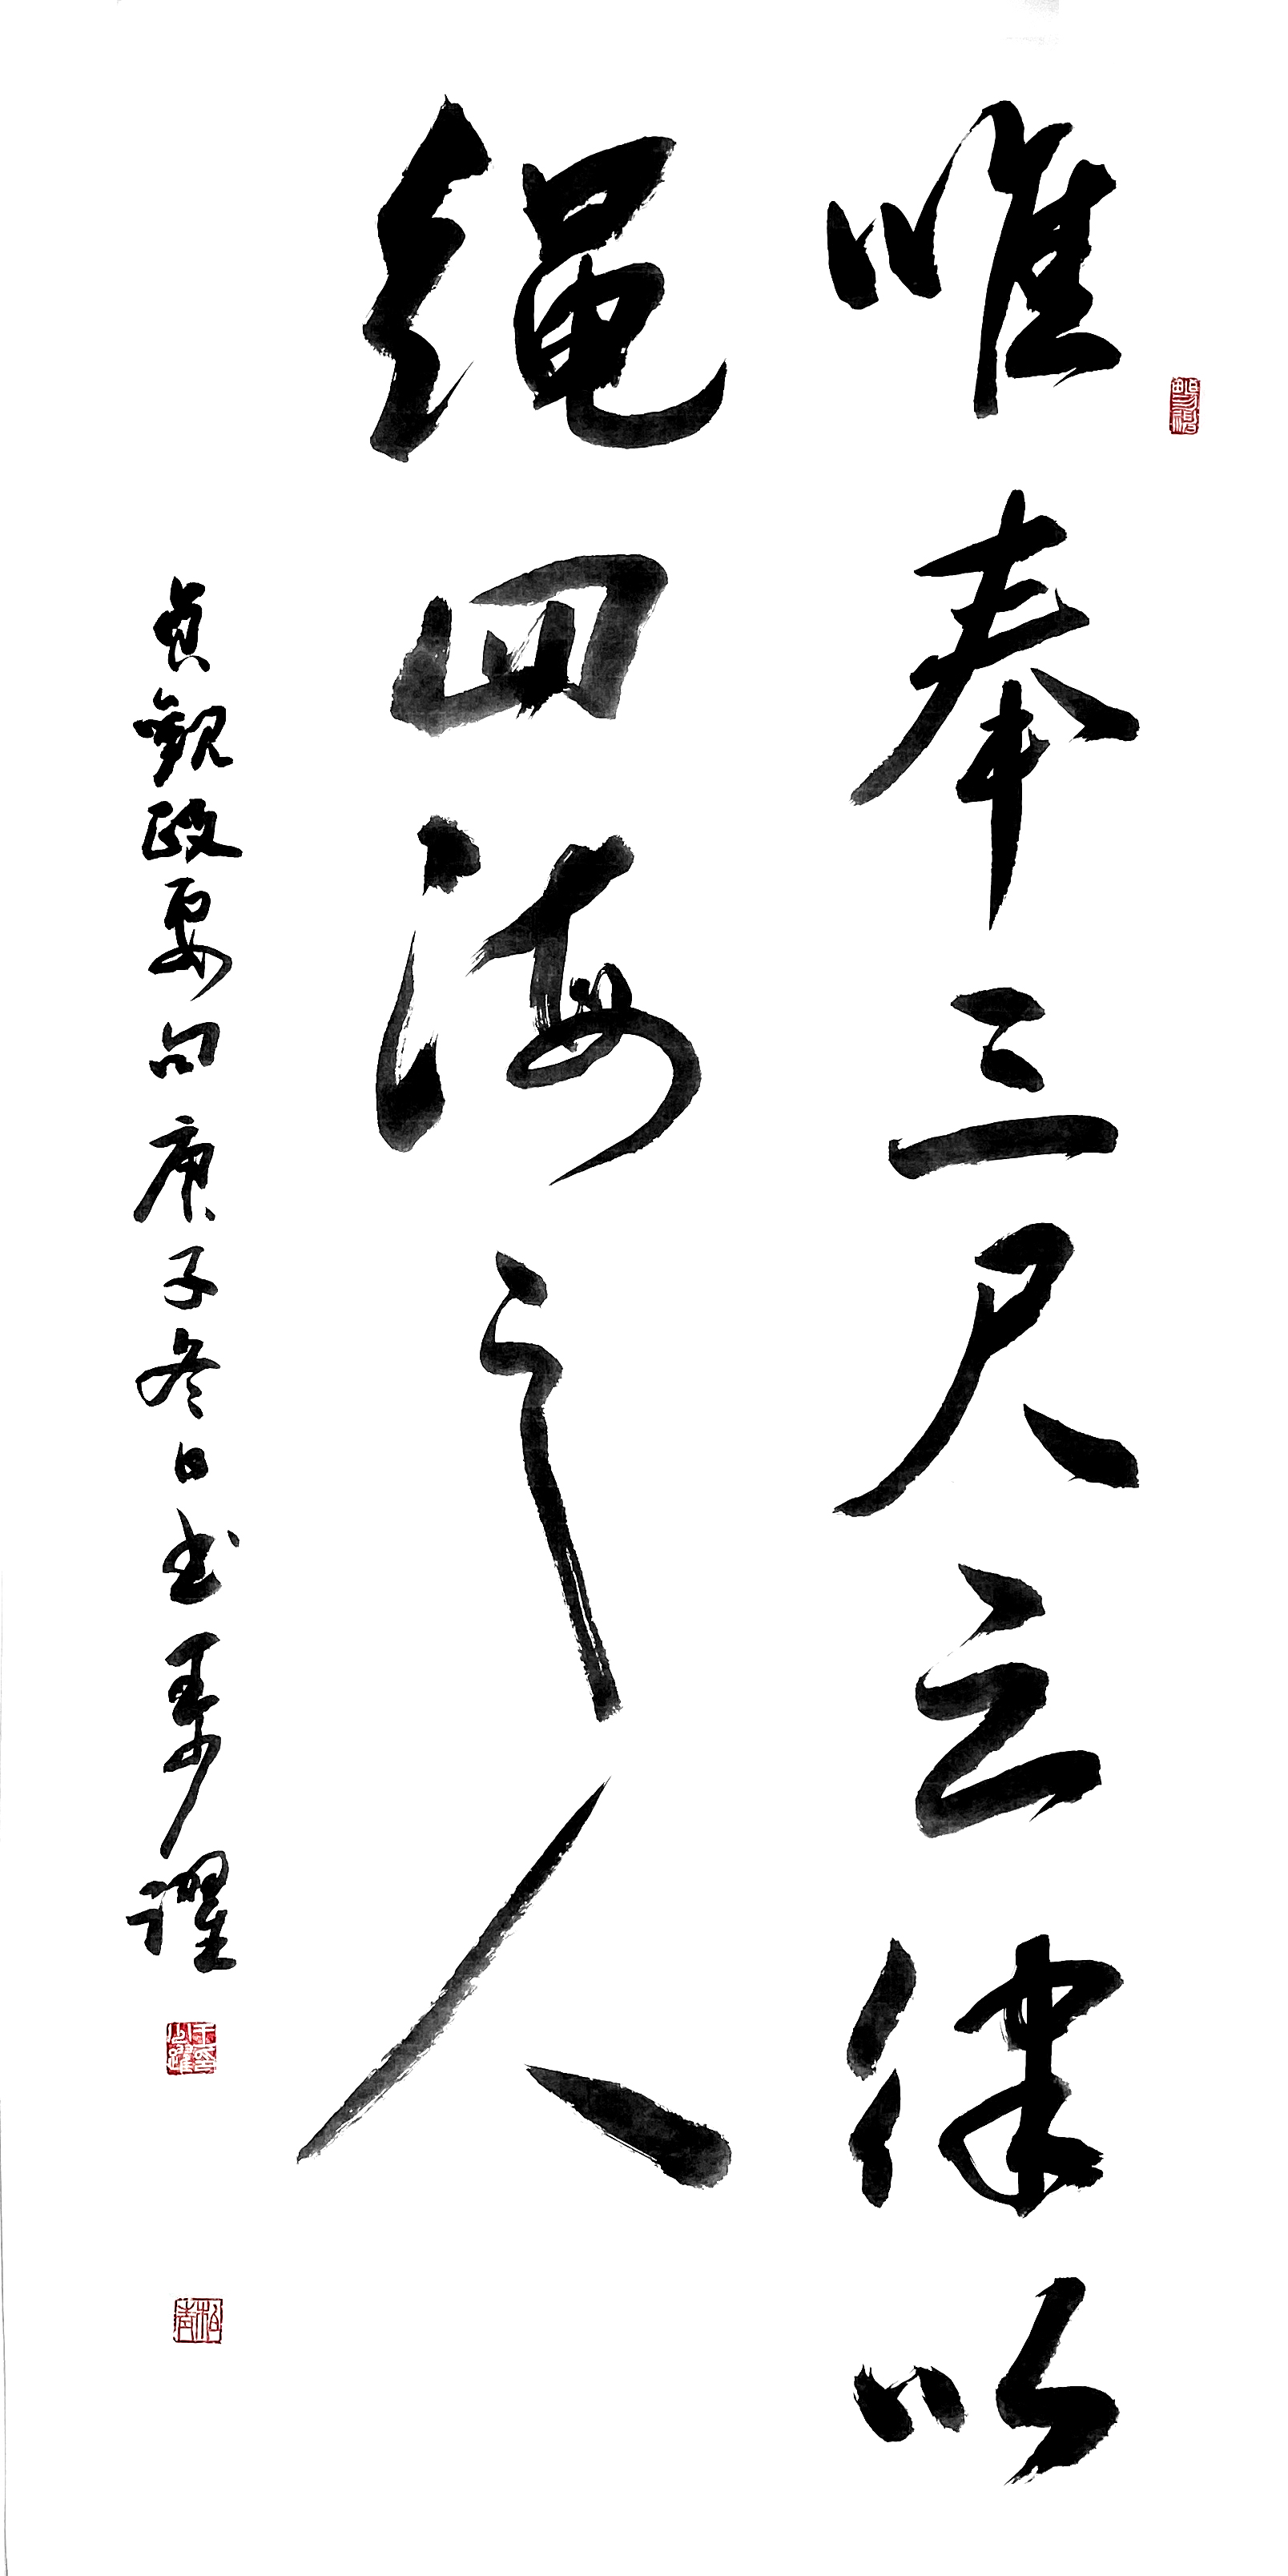 唯奉三尺之律以
绳四海之人
貞觀政要句庚子冬日书王少躍